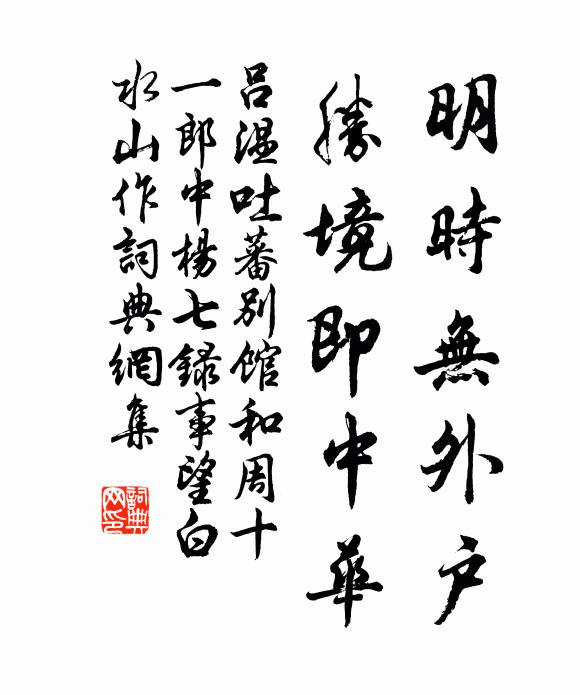 明時無外户
勝境即中華
呂溫吐蕃別館和周十
一郎中楊七錄事望白
水山作詞典網集
詞典网印